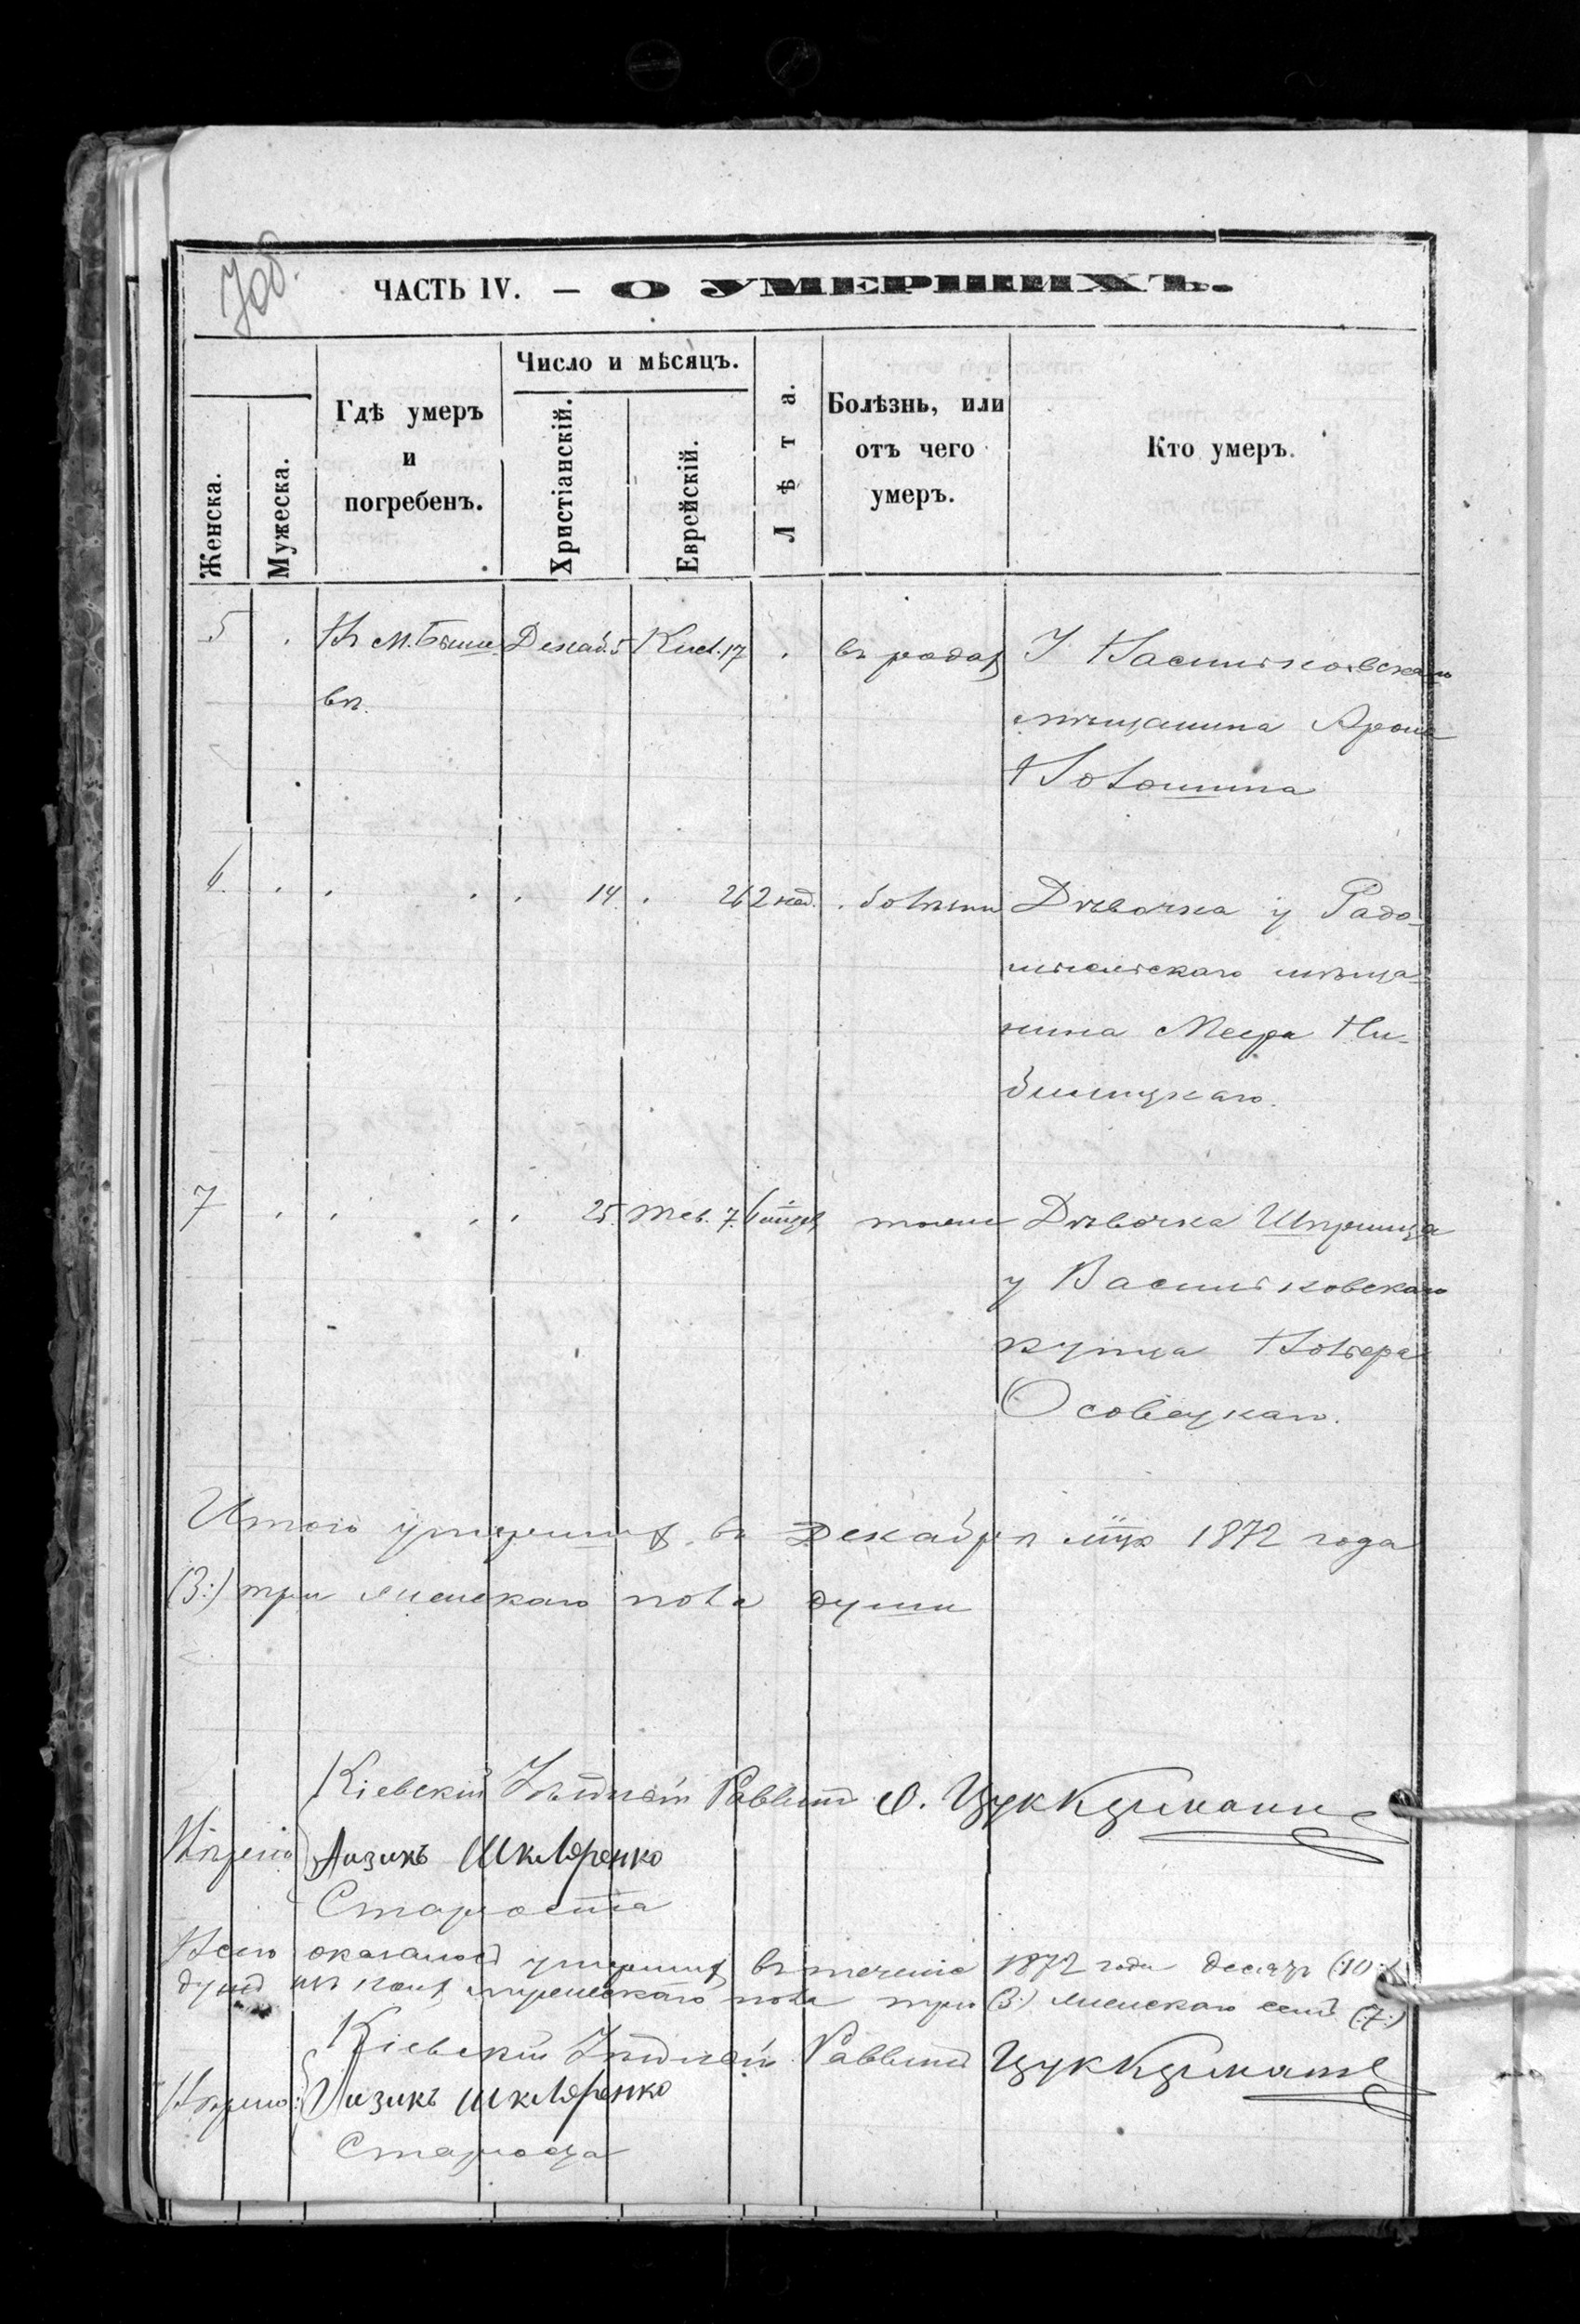 ЧАСТЬ IV. — О УМЕРШИХЪ.
Женска.
Мужеска.
Гдѣ умеръ
и
погребенъ.
Число и мѣсяцъ.
Христіанскій.
Еврейскій.
Лѣта.
Болѣзнь, или
отъ чего
умеръ.
Кто умеръ.
5 . Въ м. Быше- Декаб. 5 Кисл. 17 . въ родахъ У Васильковскаго
въ. мѣщанина Арона
6. . . . . 14. . 26 2 нед. . болѣзни Дѣвочка у Радо-
мысльскаго мѣща-
нина Меера
7 . . . . 25. Тев. 7. 6 мѣсц. тоже Дѣвочка Шпринца
у Васильковскаго
купца
Осовецкаго.
Итого умершихъ въ Декабрѣ мцѣ 1872 года
(3:) три женскаго пола души
Кіевскій Уѣздный Раввинъ Цуккерманъ
Вѣрно Аизикъ Шкляренко
Староста
Всего оказалось умершихъ въ теченіе 1872 года десять (:10:)
душъ изъ коихъ мужескаго пола три (3:) женскаго семь (:7:)
Кіевскій Уѣздный Раввинъ Цуккерманъ
Вѣрно: Аизикъ Шкляренко
Староста